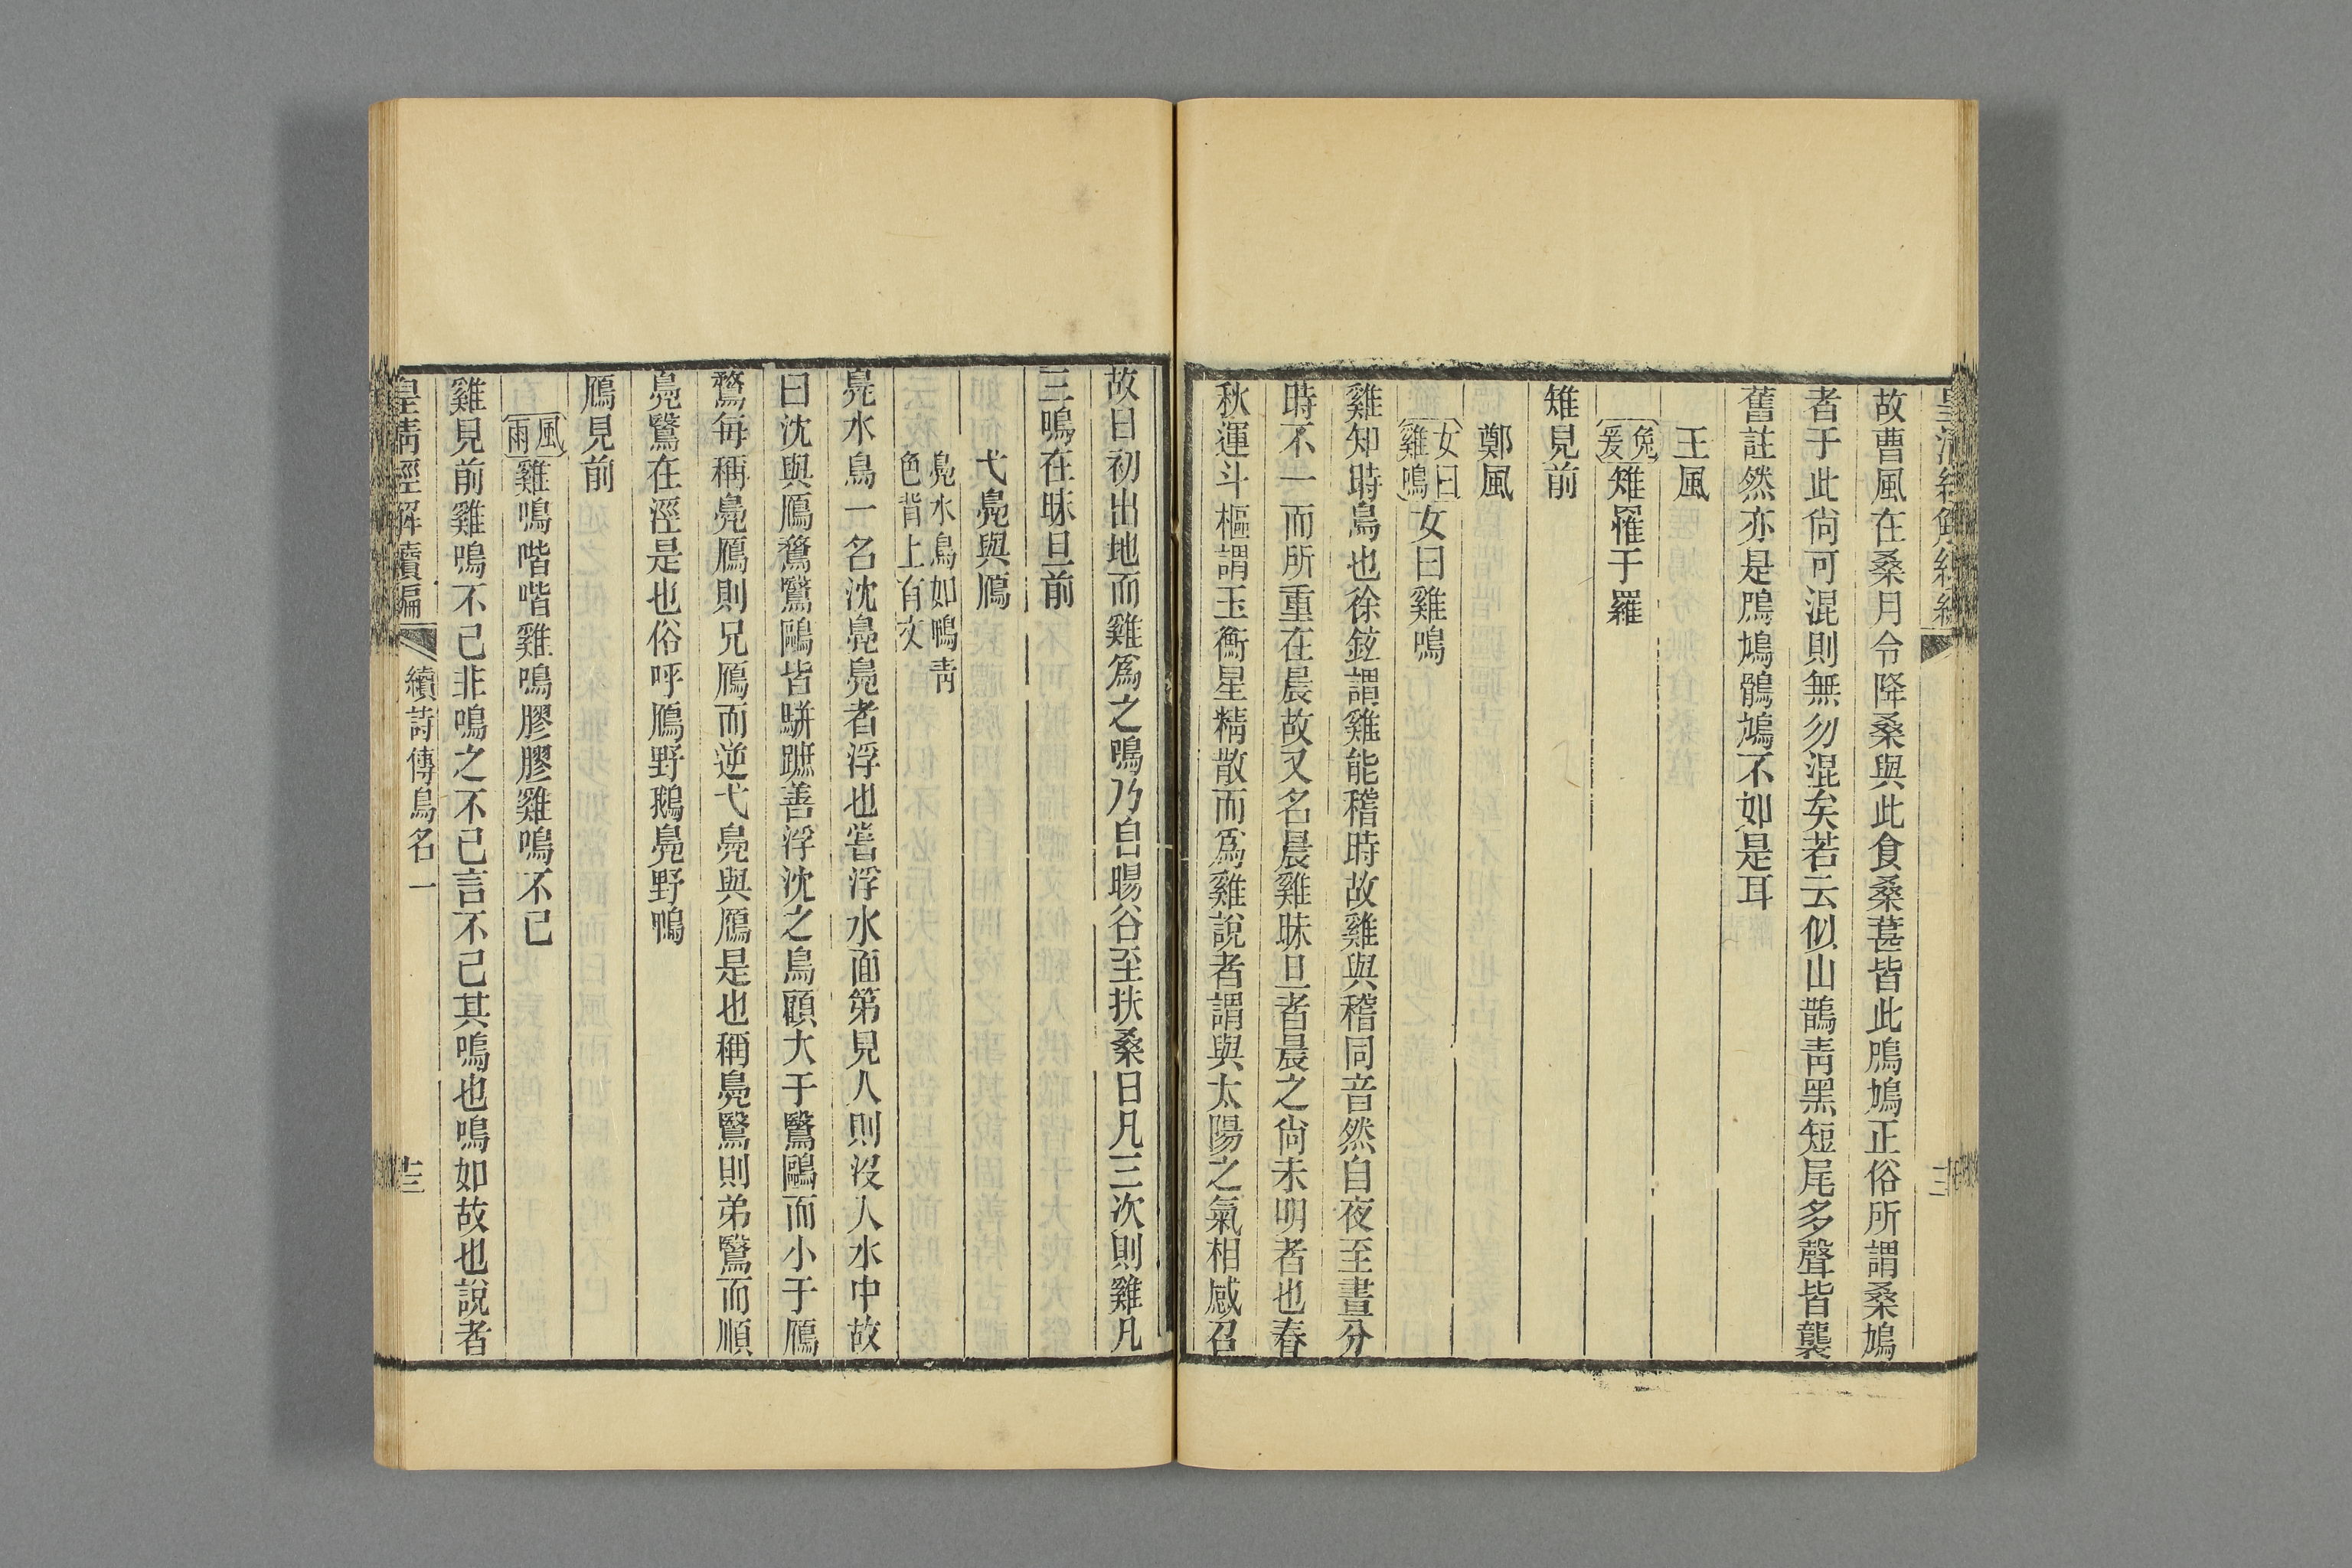 故曹風在桑月令降桑與此食桑葚皆此鳲鳩正俗所謂桑鳩
者于此尙可混則無勿混矣若云似山鵲靑黑短尾多聲皆襲
舊註然亦是鳲鳩鶻鵃不如是耳
王風
兔爰雉罹于羅
雉見前
鄭風
女曰雞鳴女曰雞鳴
雞知時鳥也徐鉉謂雞能稽時故雞與稽同音然自夜至晝分
時不一而所重在晨故又名晨雞昧旦者晨之尙未明者也春
秋運斗樞謂玉衡星精散而爲雞說者謂與太陽之氣相感召
故日初出地而雞爲之鳴乃自暘谷至扶桑日凡三次則雞凡
三鳴在昧旦前
弋鳧與鴈
鳧水鳥如鴨靑
色背上有文
鳧水鳥一名沈鳧鳧者浮也嘗浮水面第見人則沒入水中故
曰沈與鴈鶩鷖鷗皆騈蹠善浮沈之鳥顧大于鷖鷗而小于鴈
鶩每稱鳧鴈則兄鴈而逆弋鳧與鴈是也稱鳧鷖則弟鷖而順
鳧鷖在涇是也俗呼鴈野鵝鳧野鴨
鴈見前
風雨雞鳴喈喈雞鳴膠膠雞鳴不已
雞見前雞鳴不已非鳴之不已言不已其鳴也鳴如故也說者
皇淸經解續編
續詩傳鳥名一
十三